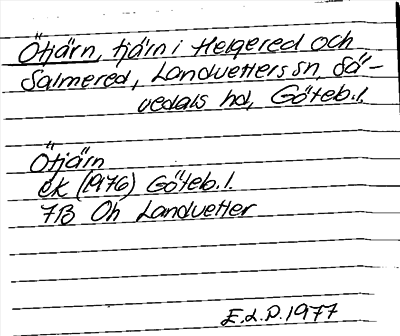 Ötjärn, tjärn i Helgered och
Salmered, Landvetters sn, Sä-
vedals hd, Göteb. l.
Ötjärn
ek (1976) Göteb. l.
7B Öh Landvetter
E.L.P. 1977